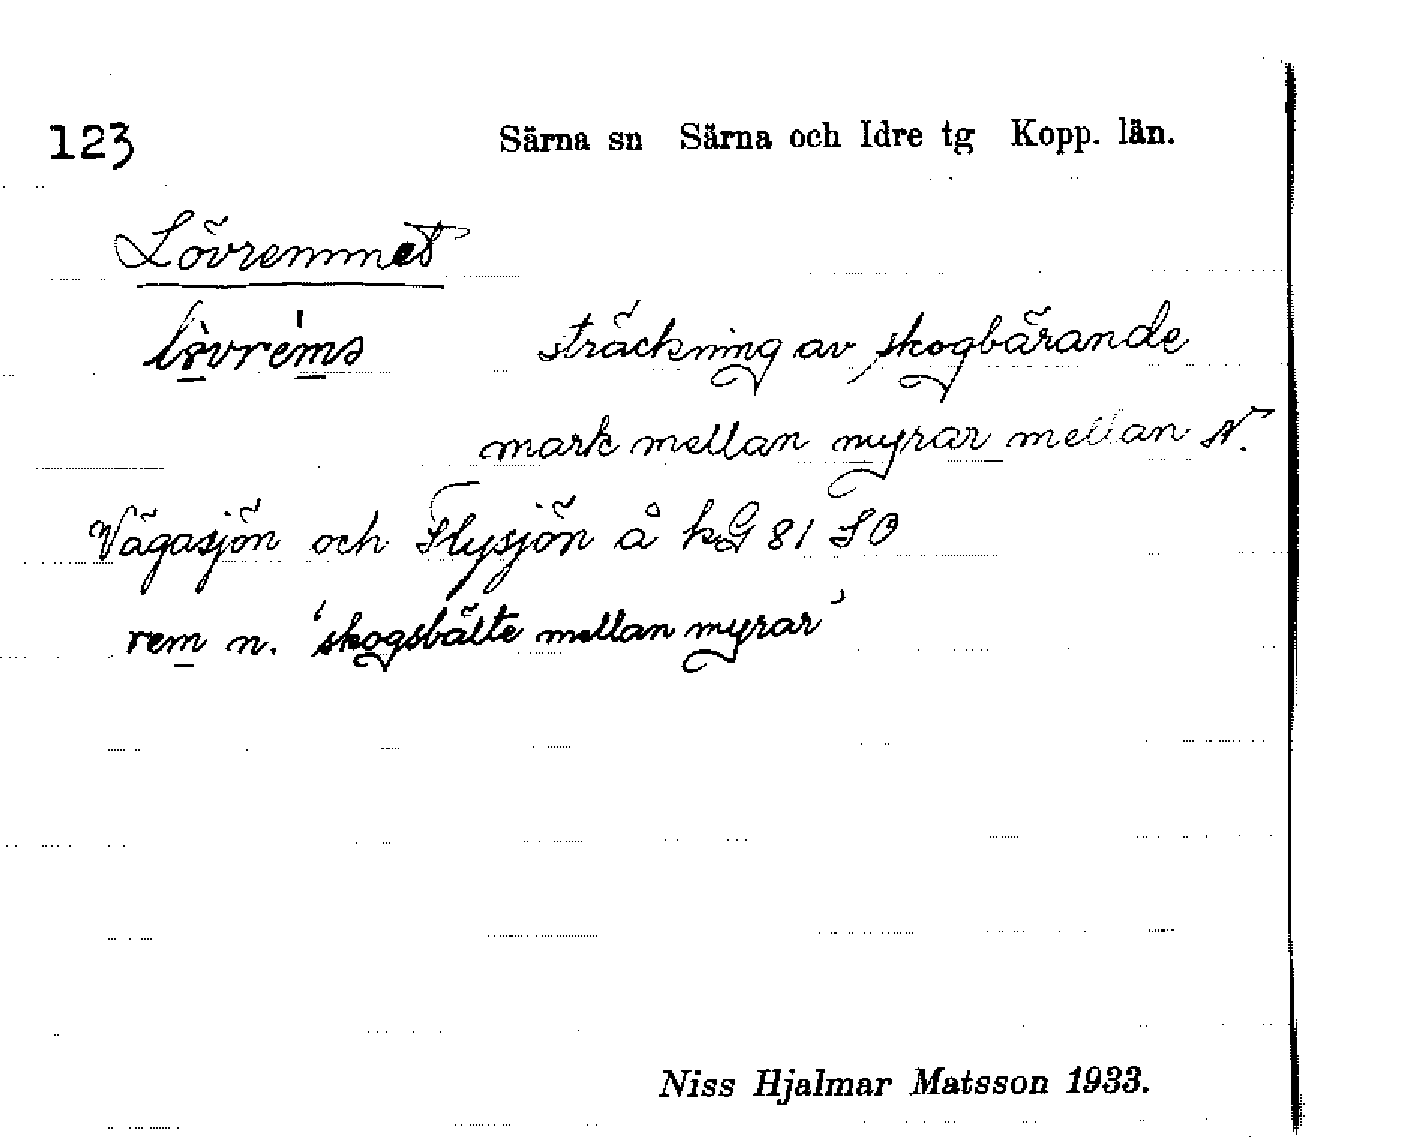 123 Särna sn Särna och Idre tg Kopp. län.
Lövremmet
sträckning av skogbärande
mark mellan myrar mellan N.
Vägasjön och Flysjön å kG 81 SO
rem n. 'skogsbälte mellan myrar'
Niss Hjalmar Matsson 1933.